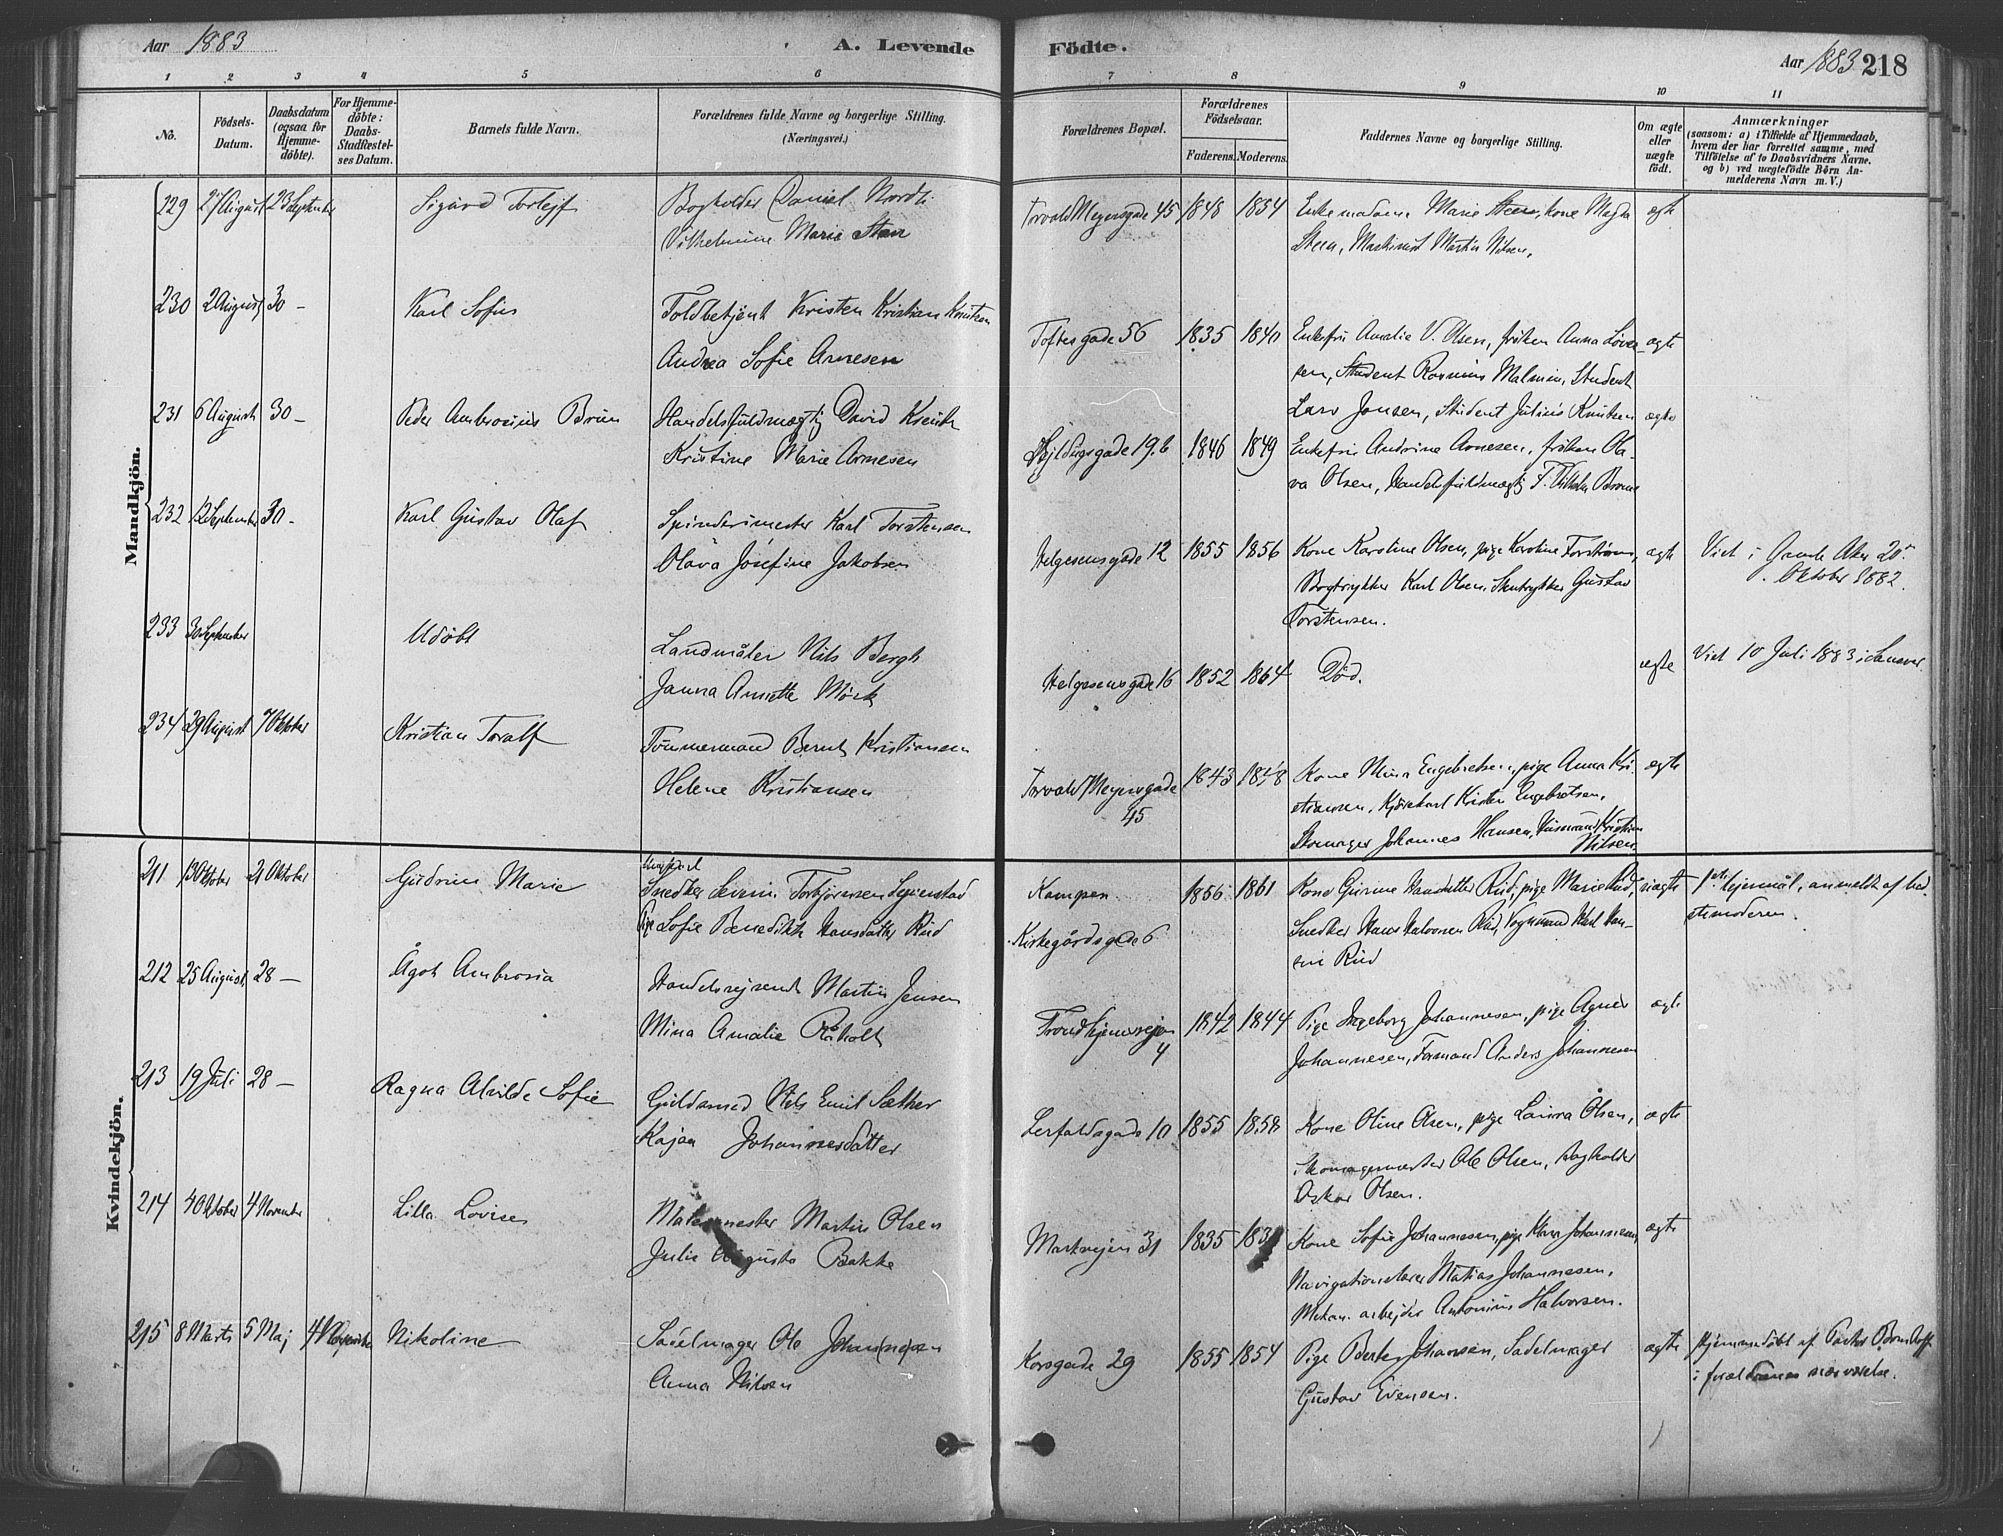 Aar 1883
A. Levende
Födte.
Aar 1883 218
1 2 3 4 5 6 7 8 9 10 11
No.
Födsels-
Datum.
Daabsdatum
(ogsaa for
Hjemme-
döbte).
For Hjemme-
döbte:
Daabs-
Stadfæstel-
ses Datum.
Barnets fulde Navn.
Forældrenes fulde Navne og borgerlige Stilling.
(Næringsvei.)
Forældrenes Bopæl.
Forældrenes
Födselsaar.
Faderens. Moderens.
Faddernes Navne og borgerlige Stilling.
Om ægte
eller
uægte
født.
Anmærkninger
(saasom: a) i Tilfælde af Hjemmedaab,
hvem der har forrettet samme, med
Tilföielse af to Daabsvidners Navne,
og b) ved uægtefödte Børn An-
melderens Navn m. V.)
Mandkjön.
229 27 August 23 September Sigurd Torlejf Bogholder Daniel Nordli Torvald Meyersgade 45 1848 1854 Enkemadam Marie Steen, kone Magda ægte
Vilhelmine Marie Steen Steen, Maskinist Martin Nilsen.
230 2 August 30 – Karl Sofus Toldbetjent Kristen Kristian Knutsen
Toftesgade 56 1835 1840 Enkefru Amalie V. Olsen, frøken Anna ægte
Andrea Sofie Arnesen sen, Student Malmin, Student
231 6 August 30 – Peder Ambrosius Brun Handelsfuldmægtig David Lars Jonsen, Student Julius Knutsen ægte
Kristine Marie Arnesen Skjoldugsgade 19.b 1846 1849 Enkefru Andrine Arnesen, frøken Ola-
va Olsen, Handelsfuldmægtig
232 12 September 30 – Karl Gustav Olaf Spinderimester Karl Torstensen
Olava Josefine Jakobsen Helgesensgade 12 1855 1856 Kone Karoline Olsen, pige Karoline ægte Viet i Gamle Aker 20
Bogtrykker Karl Olsen, Stentrykker Gustav Oktober 1882.
Torstensen.
233 30 September Udøbt Landmåler Nils Bergh
Janna Annette Mörk Helgesensgade 16 1852 1864 Død. ægte Viet 10 Juli 1883 i
234 29 August 7 Oktober Kristian Toralf Tømmermand Bernt Kristiansen
Helene Kristiansen Torvald Meyersgade 1843 1848 Kone Mina Engebretsen, pige Anna Kri- ægte
45 stiansen, Kjørekarl Kristen Engebretsen,
Skomager Johannes Hansen, Kristian
Nilsen
Kvindekjön.
211 13 Oktober 21 Oktober Gudrun Marie Ungkarl
Snedker Severin Torbjørnsen Kampen 1856 1861 Kone Gurine Hansdatter Rud, pige Marie Rud, uægte 1ste lejermål, anmeldt af bed-
Pige Sofie Benedikte Hansdatter Rud Kirkegårdsgade 6 Snedker Hans Halvorsen Rud, Vognmand Karl Han- stemoderen.
sen Rud
212 25 August 28 – Ågot Ambrosia Handelsrejsende Martin Jensen
Mina Amalie Råholt Trondhjemsvejen 1842 1844 Pige Ingeborg Johannesen, pige Agnes ægte
4 Johannesen, Formand Anders Johannesen
213 19 Juli 28 – Ragna Alvilde Sofie Guldsmed Nils Emil Sæther
Kajsa Johannesdatter Lerfaldsgade 10 1855 1858 Kone Oline Olsen, pige Laura Olsen, ægte
Skomagermester Ole Olsen, Bogholder
Oskar Olsen.
214 4 Oktober 4 November Lilla Lovise Malermester Martin Olsen
Julie Augusta Bakke Markvejen 31 1835 183 Kone Sofie Johannesen, pige Klara Johannesen, ægte
Navigationslærer Matias Johannesen,
Mekan. arbejder Antonius Halvorsen.
215 8 Marts 5 Maj 4 November Nikoline Sadelmager Ole Johannesen
Anna Nilsen Korsgade 29 1855 1854 Pige Berte Johansen, Sadelmager ægte Hjemmedøbt af Pastor
Gustav Evensen. i forældrenes nærværelse.